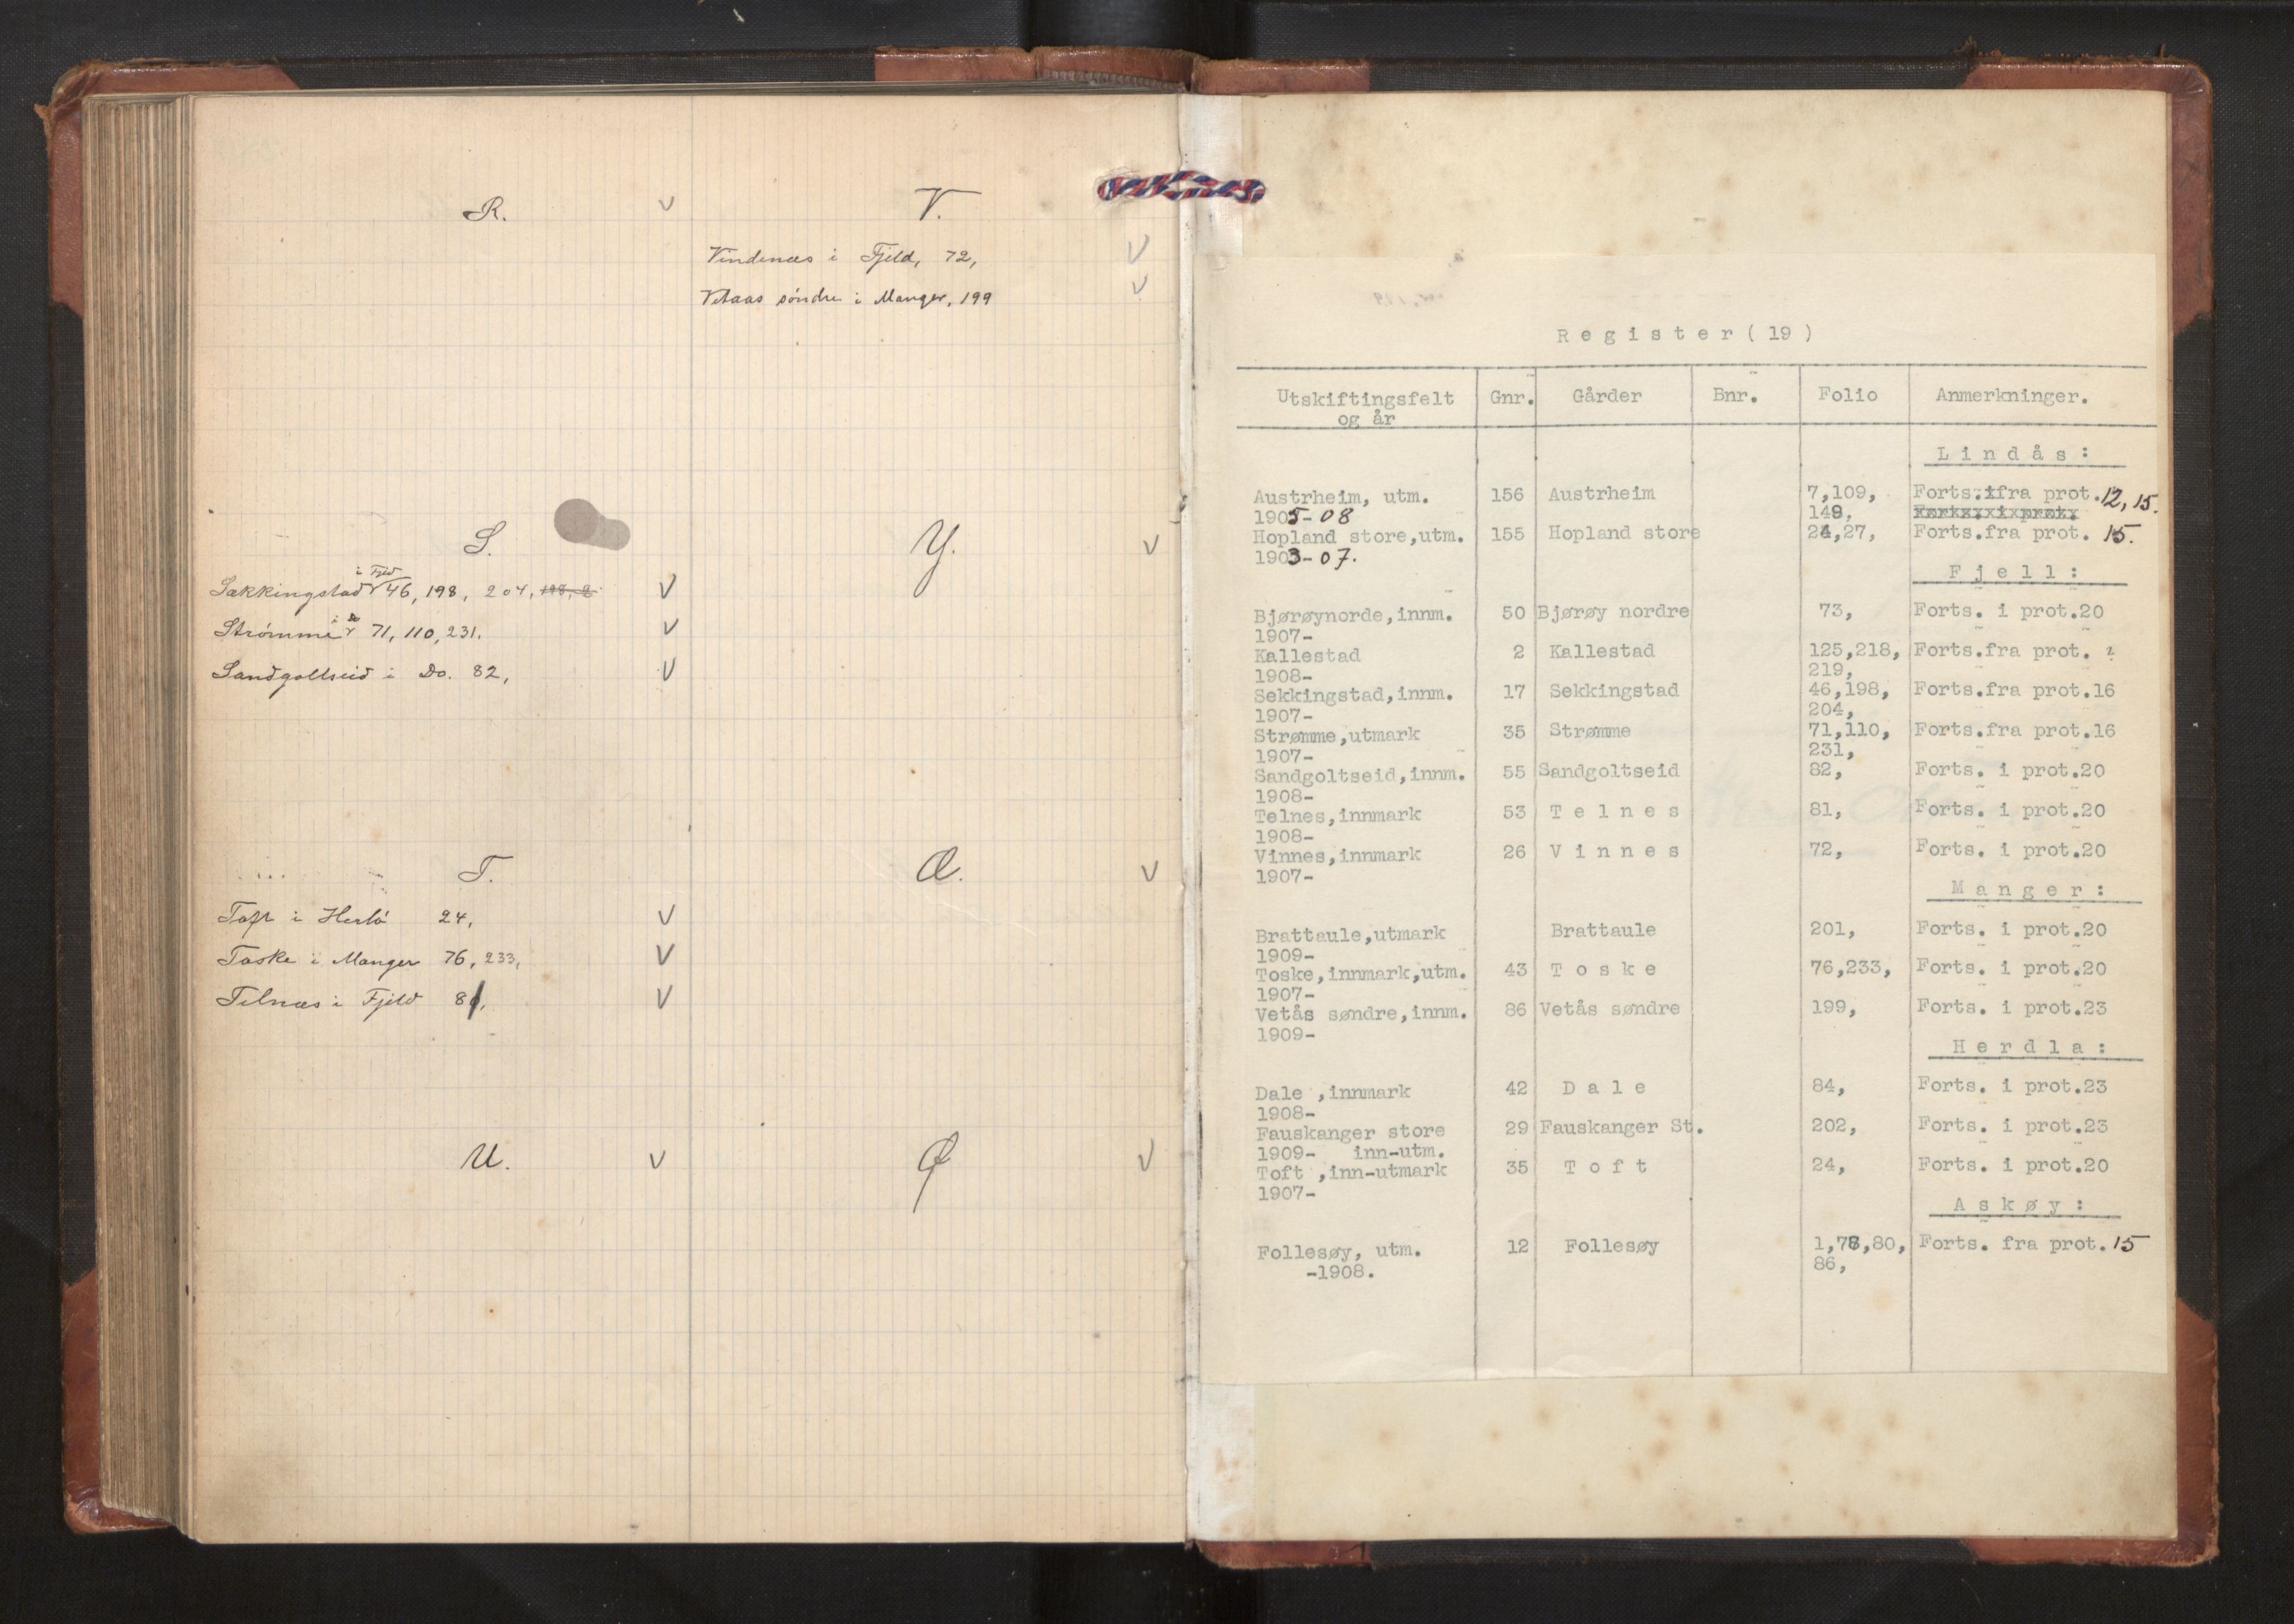 R.
V.
Vindenæs i Fjeld, 72,
Vetaas söndre i Manger, 199
S.
Y.
i Fjeld
Sækkingstad 46, 198, 204,
Strömme i Do 71, 110, 231.
Sandgoltseid i Do. 82,
T.
Æ.
Toft i Herlö 24,
Toske i Manger 76, 233,
Telnæs i Fjeld 81,
U.
Ø
Register ( 19 )
Utskiftingsfelt og år | Gnr. | Gårder | Bnr. | Folio | Anmerkninger.
Lindås:
Austrheim, utm. 156 Austrheim 7,109, Forts. fra prot. 12, 15.
1905-08 149,
Hopland store,utm. 155 Hopland store 24,27, Forts.fra prot. 15.
1903-07.
Fjell:
Bjørøynorde,innm. 50 Bjørøy nordre 73, Forts. i prot.20
1907-
Kallestad 2 Kallestad 125,218, Forts.fra prot.
1908- 219,
Sekkingstad,innm. 17 Sekkingstad 46,198, Forts.fra prot.16
1907- 204,
Strømme,utmark 35 Strømme 71,110, Forts.fra prot.16
1907- 231,
Sandgoltseid,innm. 55 Sandgoltseid 82, Forts. i prot.20
1908-
Telnes,innmark 53 Telnes 81, Forts. i prot.20
1908-
Vinnes,innmark 26 Vinnes 72, Forts. i prot.20
1907-
Manger:
Brattaule,utmark Brattaule 201, Forts. i prot.20
1909-
Toske,innmark,utm. 43 Toske 76,233, Forts. i prot.20
1907-
Vetås søndre,innm. 86 Vetås søndre 199, Forts. i prot.23
1909-
Herdla:
Dale ,innmark 42 Dale 84, Forts. i prot.23
1908-
Fauskanger store 29 Fauskanger St. 202, Forts. i prot.23
1909- inn-utm.
Toft ,inn-utmark 35 Toft 24, Forts. i prot.20
1907-
Askøy:
Follesøy, utm. 12 Follesøy 1,78,80, Forts. fra prot. 15
-1908. 86,